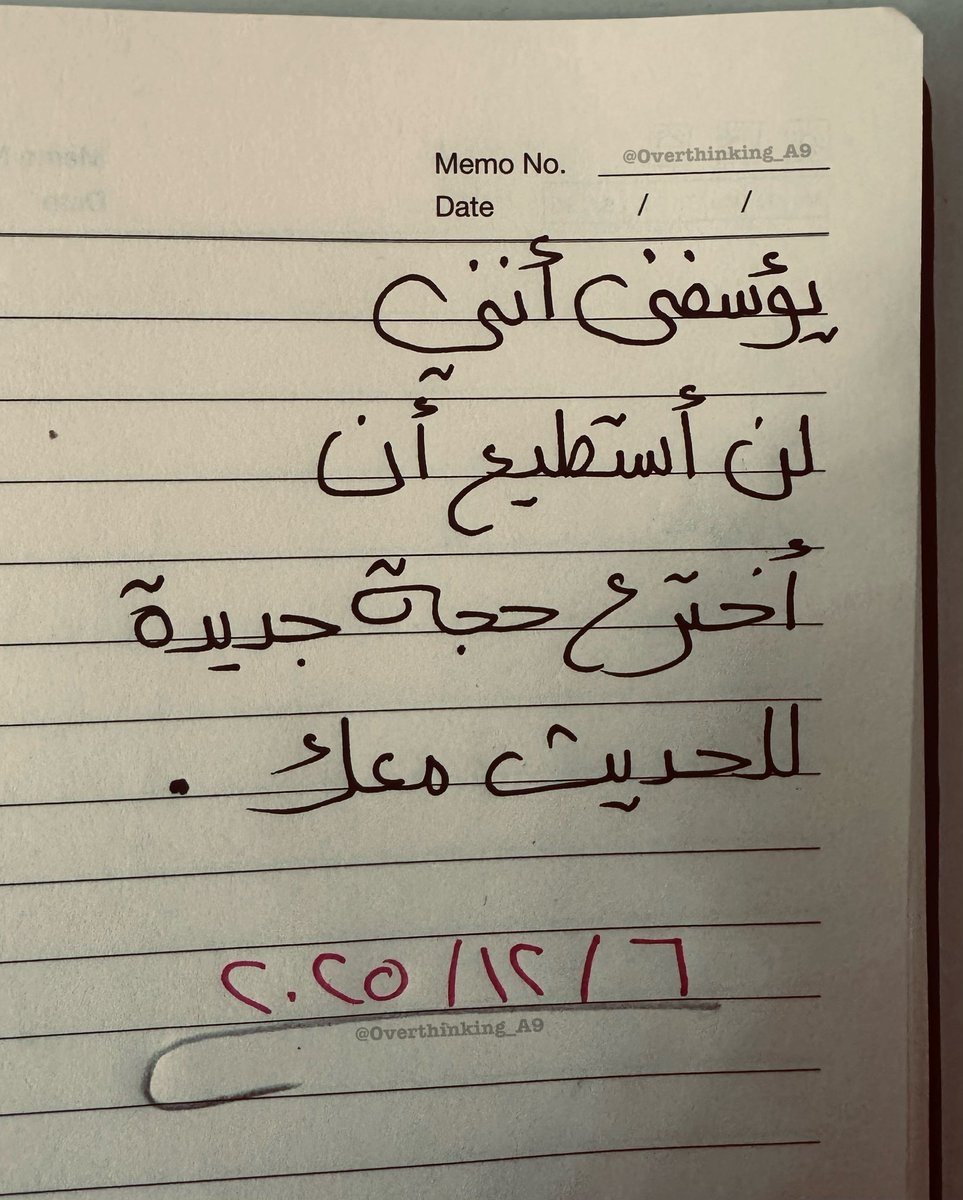 Memo No. @Overthinking_A9
Date / /
يؤسفني أنني
لن أستطيع أن
أخترع حجة جديدة
للحديث معك .
٦ / ١٢ / ٢٠٢٥
@Overthinking_A9